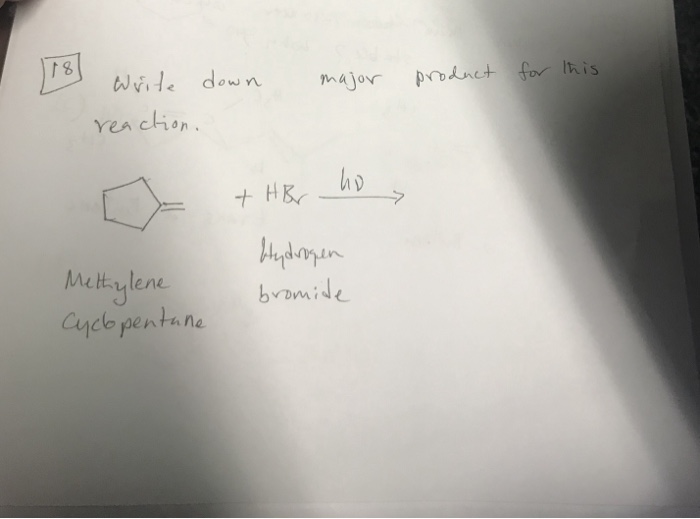 18
Write down major product for this
reaction.
+ HBr hν
Hydrogen
bromide
Methylene
Cyclopentane